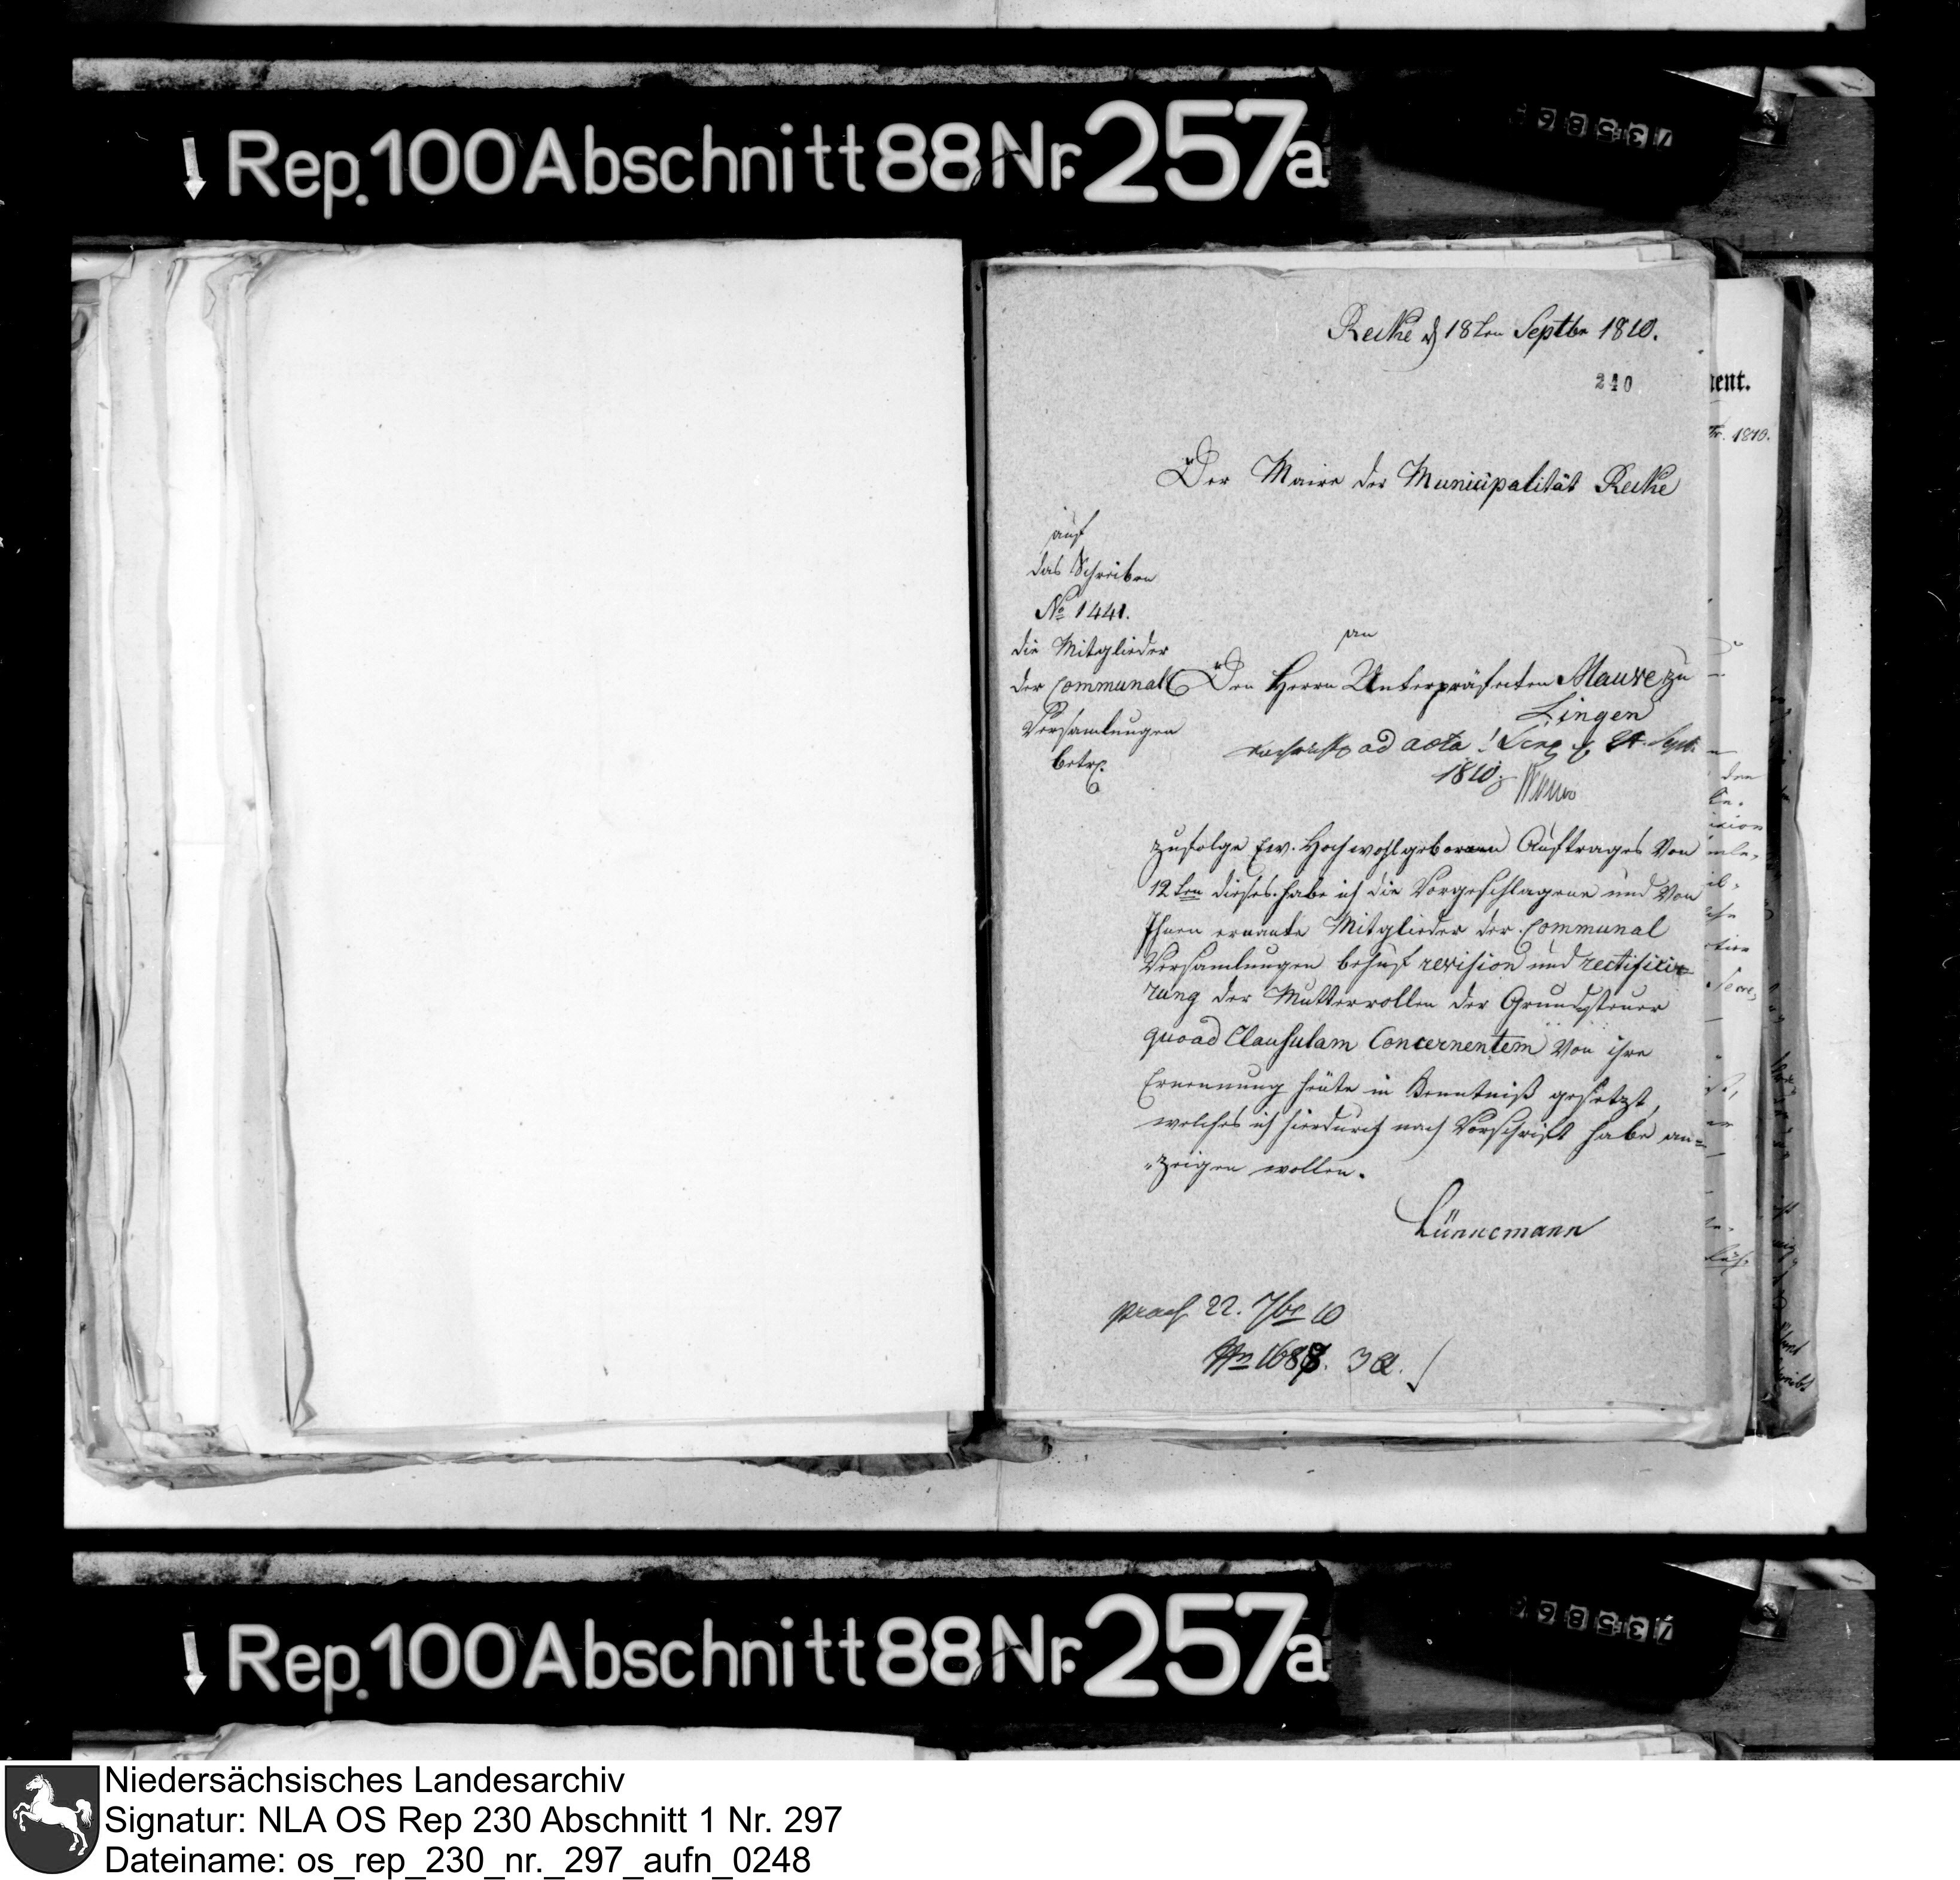 Rep. 100 Abschnitt 88 Nr. 257a
Recke d 18ten Septbr 1810.
240
Der Maire der Municipalität Recke
auf
das Schreiben
No 1441.
die Mitglieder
der Communal
Versamlungen
betr.
an
Den Herrn Unterpräfecten Mauve zu
Lingen
ad acta! Ling d 24. Sept.
1810. Mauve
zufolge Ew. Hochwohlgebornen Auftrages Von
12ten dieses habe ich die Vorgeschlagene und Von
Ihnen ernante Mitglieder der Communal
Versamlungen behuf revision und rectifici=
rung der Mutterrollen der Grundsteuer
quoad Clausulam Concernentem Von ihre
Ernennung heute in Kenntniß gesetzt,
welches ich hierdurch nach Vorschrift habe an=
"zeigen wollen.
Lünnemann
praes 22. 7br 10
No 1688.
ent.
1810.
Rep. 100 Abschnitt 88 Nr. 257a
Niedersächsisches Landesarchiv
Signatur: NLA OS Rep 230 Abschnitt 1 Nr. 297
Dateiname: os_rep_230_nr._297_aufn_0248